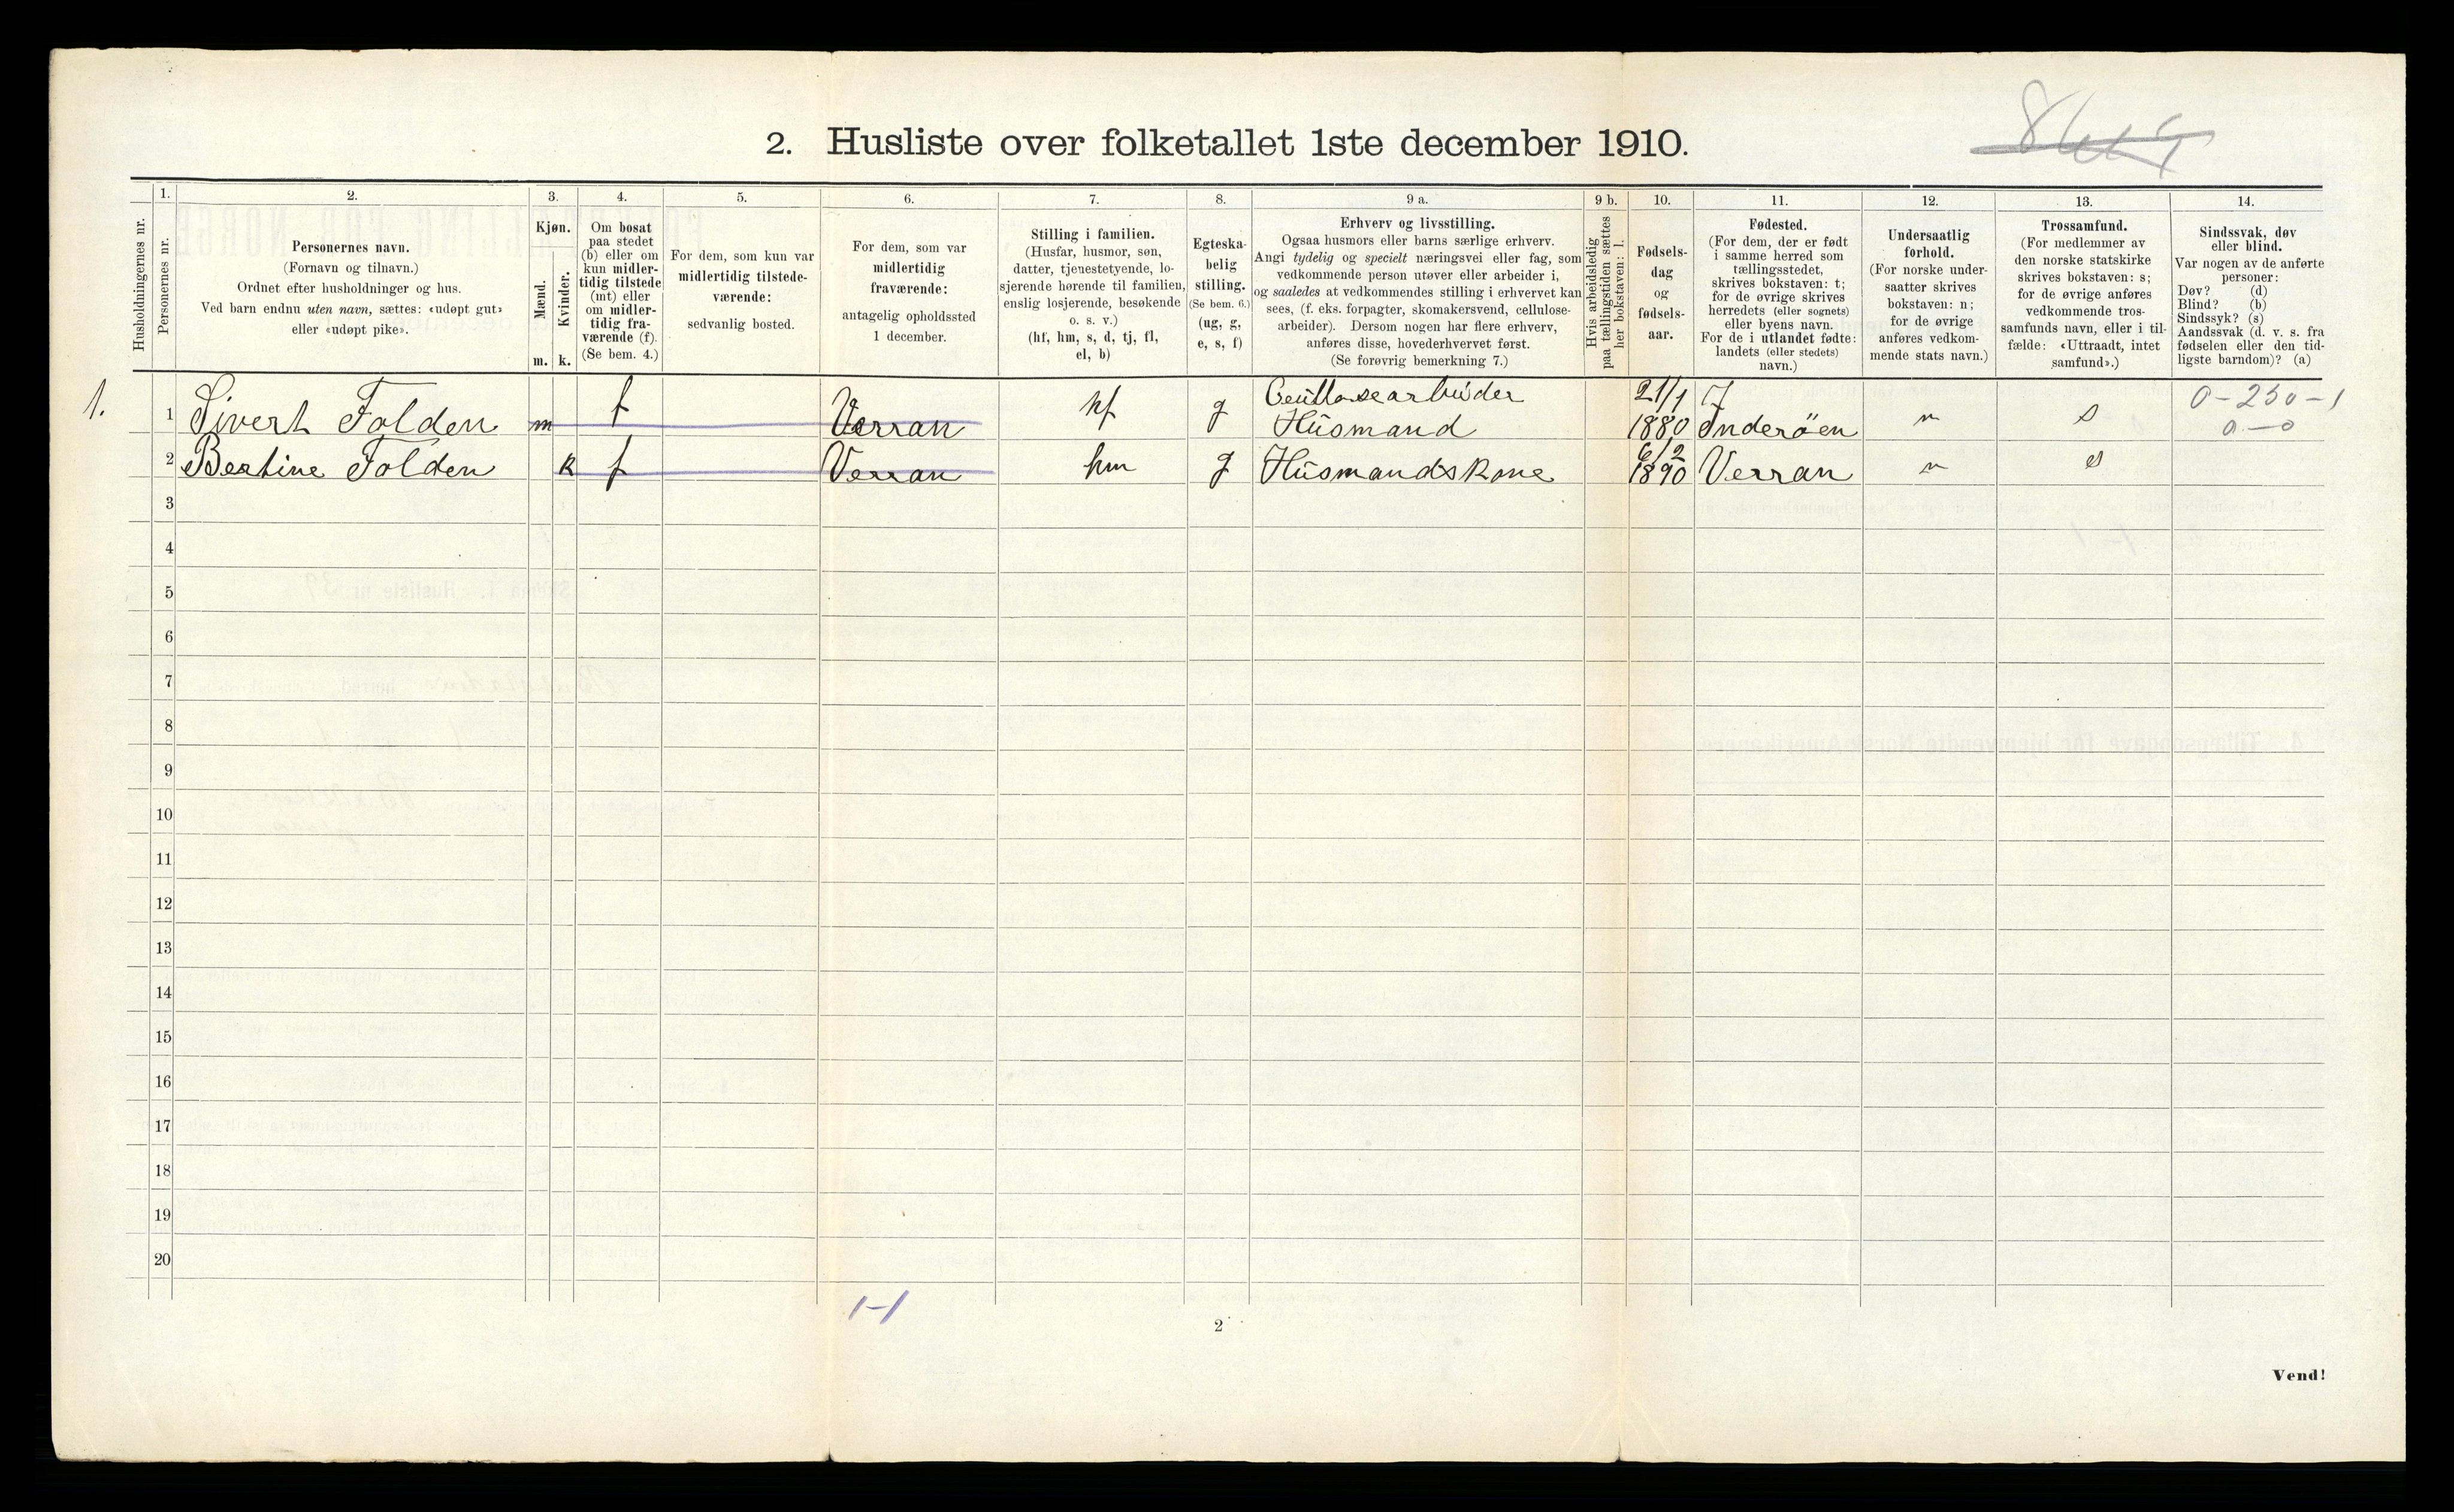 2. Husliste over folketallet 1ste december 1910.
Husholdningernes nr.
1.
Personernes nr.
2.
Personernes navn.
(Fornavn og tilnavn.)
Ordnet efter husholdninger og hus.
Ved barn endnu uten navn, sættes: «udøpt gut»
eller «udøpt pike».
3.
Kjøn.
Mænd.
Kvinder.
m. k.
4.
Om bosat
paa stedet
(b) eller om
kun midler-
tidig tilstede
(mt) eller
om midler-
tidig fra-
værende (f).
(Se bem. 4.)
5.
For dem, som kun var
midlertidig tilstede-
værende:
sedvanlig bosted.
6.
For dem, som var
midlertidig
fraværende:
antagelig opholdssted
1 december.
7.
Stilling i familien.
(Husfar, husmor, søn,
datter, tjenestetyende, lo-
sjerende hørende til familien,
enslig losjerende, besøkende
o. s. v.)
(hf, hm, s, d, tj, fl,
el, b)
8.
Egteska-
belig
stilling.
(Se bem. 6.)
(ug, g,
e, s, f)
9 a.
Erhverv og livsstilling.
Ogsaa husmors eller barns særlige erhverv.
Angi tydelig og specielt næringsvei eller fag, som
vedkommende person utøver eller arbeider i,
og saaledes at vedkommendes stilling i erhvervet kan
sees, (f. eks. forpagter, skomakersvend, cellulose-
arbeider). Dersom nogen har flere erhverv,
anføres disse, hovederhvervet først.
(Se forøvrig bemerkning 7.)
9 b.
Hvis arbeidsledig
paa tællingstiden sættes
her bokstaven: l.
10.
Fødsels-
dag
og
fødsels-
aar.
11.
Fødested.
(For dem, der er født
i samme herred som
tællingsstedet,
skrives bokstaven: t;
for de øvrige skrives
herredets (eller sognets)
eller byens navn.
For de i utlandet fødte:
landets (eller stedets)
navn.)
12.
Undersaatlig
forhold.
(For norske under-
saatter skrives
bokstaven: n;
for de øvrige
anføres vedkom-
mende stats navn.)
13.
Trossamfund.
(For medlemmer av
den norske statskirke
skrives bokstaven: s;
for de øvrige anføres
vedkommende tros-
samfunds navn, eller i til-
fælde: «Uttraadt, intet
samfund».)
14.
Sindssvak, døv
eller blind.
Var nogen av de anførte
personer:
Døv? (d)
Blind? (b)
Sindssyk? (s)
Aandssvak (d. v. s. fra
fødselen eller den tid-
ligste barndom)? (a)
1. 1 Sivert Folden m f Verran hf g Husmand 21/1 1880 Inderöen n s 0-250-1
0-0
2 Bertine Folden k f Verran hm g Husmandskone 6/2 1890 Verran n s
3
4
5
6
7
8
9
10
11
12
13
14
15
16
17
18
19
20
1-1
2
Vend!